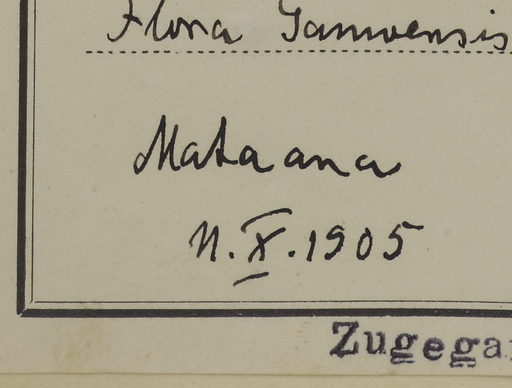 Flora Samoensis
Mataana
11.X.1905
Zugega